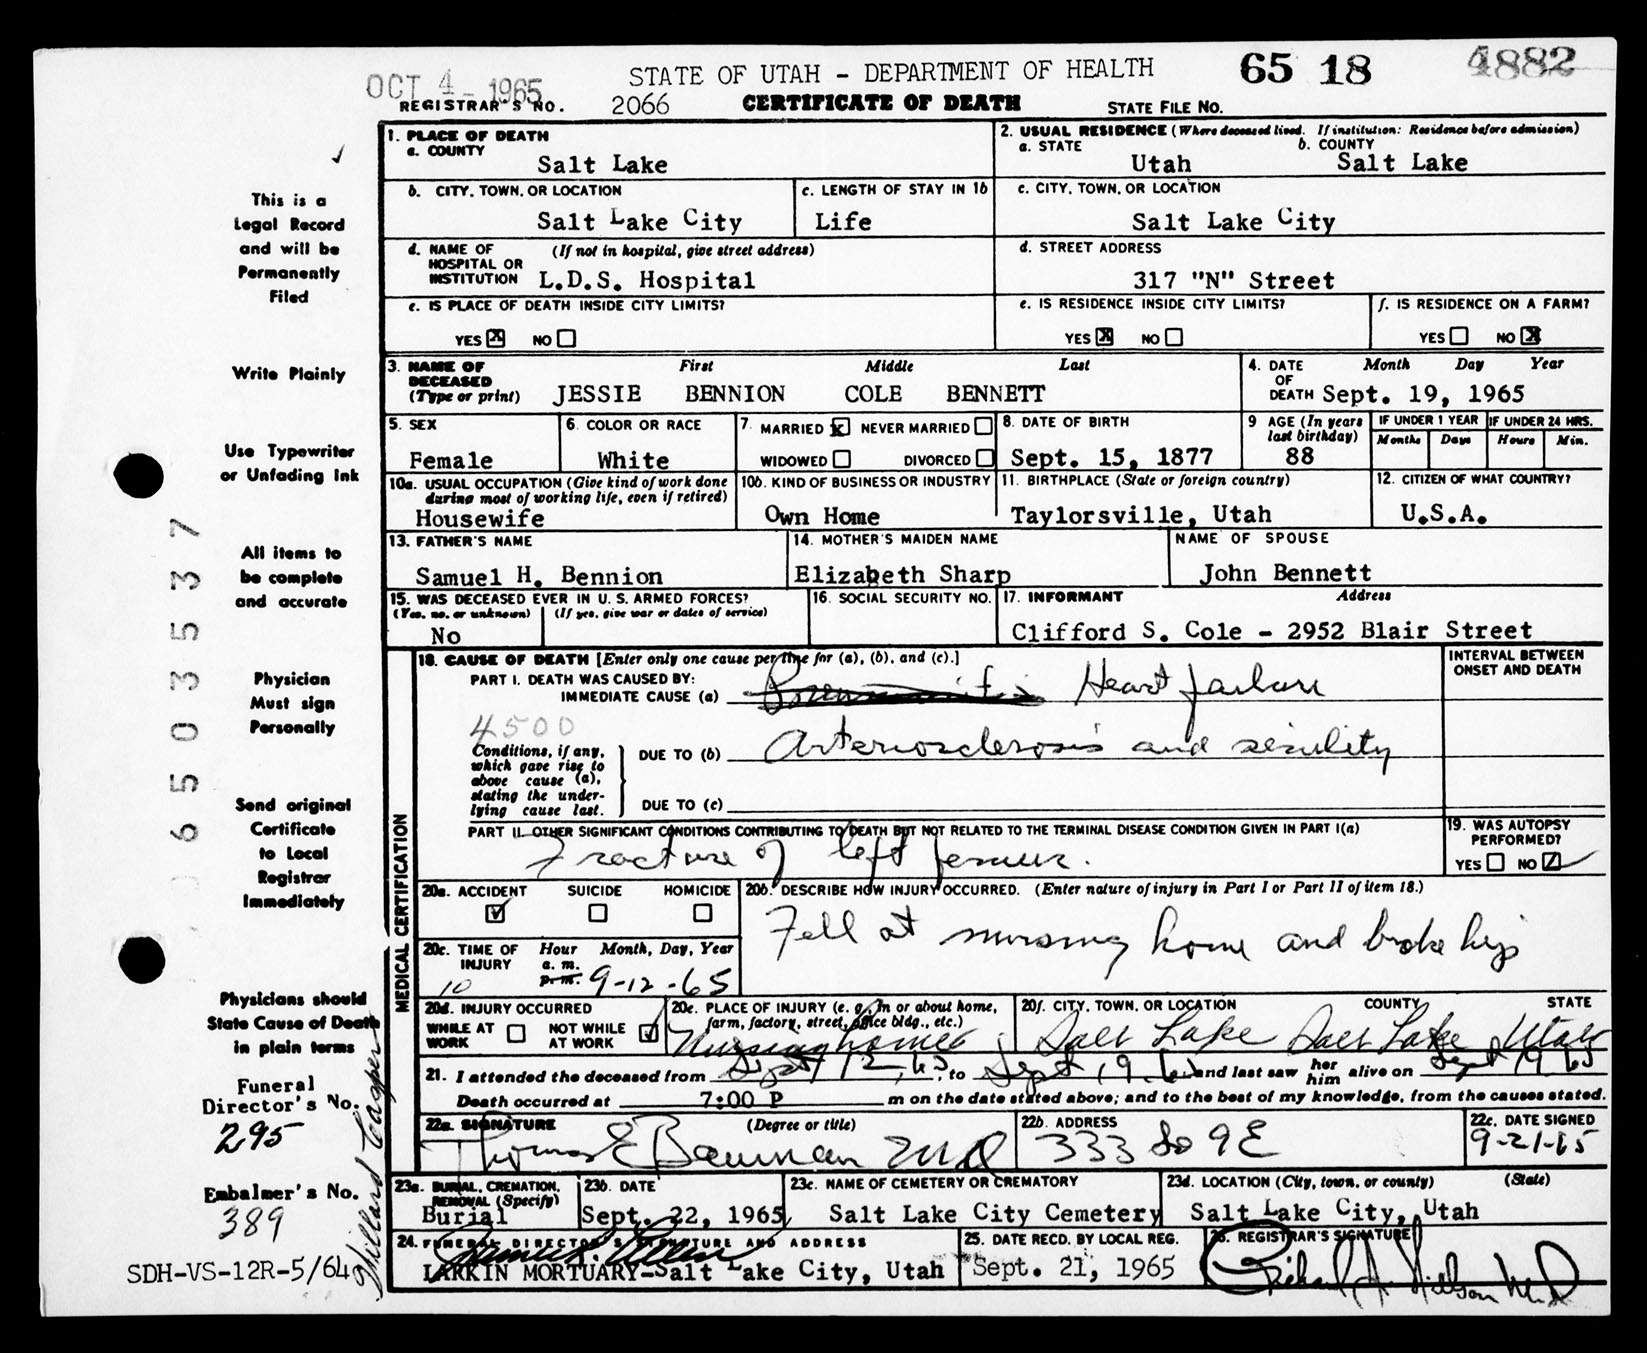 OCT 4 - 1965
STATE OF UTAH - DEPARTMENT OF HEALTH
65 18 4882
REGISTRAR'S NO. 2066 CERTIFICATE OF DEATH STATE FILE NO.
1. PLACE OF DEATH
a. COUNTY
Salt Lake
2. USUAL RESIDENCE (Where deceased lived. If institution: Residence before admission)
a. STATE b. COUNTY
Utah Salt Lake
b. CITY, TOWN, OR LOCATION
Salt Lake City
c. LENGTH OF STAY IN 1b
Life
c. CITY, TOWN, OR LOCATION
Salt Lake City
d. NAME OF HOSPITAL OR INSTITUTION (If not in hospital, give street address)
L.D.S. Hospital
d. STREET ADDRESS
317 "N" Street
e. IS PLACE OF DEATH INSIDE CITY LIMITS?
YES X NO
e. IS RESIDENCE INSIDE CITY LIMITS?
YES X NO
f. IS RESIDENCE ON A FARM?
YES NO X
3. NAME OF DECEASED (Type or print)
First Middle Last
JESSIE BENNION COLE BENNETT
4. DATE OF DEATH Month Day Year
Sept. 19, 1965
5. SEX
Female
6. COLOR OR RACE
White
7. MARRIED X NEVER MARRIED
WIDOWED DIVORCED
8. DATE OF BIRTH
Sept. 15, 1877
9 AGE (In years last birthday)
88
IF UNDER 1 YEAR IF UNDER 24 HRS.
Months Days Hours Min.
10a. USUAL OCCUPATION (Give kind of work done during most of working life, even if retired)
Housewife
10b. KIND OF BUSINESS OR INDUSTRY
Own Home
11. BIRTHPLACE (State or foreign country)
Taylorsville, Utah
12. CITIZEN OF WHAT COUNTRY?
U.S.A.
13. FATHER'S NAME
Samuel H. Bennion
14. MOTHER'S MAIDEN NAME
Elizabeth Sharp
NAME OF SPOUSE
John Bennett
15. WAS DECEASED EVER IN U. S. ARMED FORCES?
(Yes, no, or unknown) (If yes, give war or dates of service)
No
16. SOCIAL SECURITY NO.
17. INFORMANT Address
Clifford S. Cole - 2952 Blair Street
MEDICAL CERTIFICATION
18. CAUSE OF DEATH [Enter only one cause per line for (a), (b), and (c).]
INTERVAL BETWEEN ONSET AND DEATH
PART I. DEATH WAS CAUSED BY:
IMMEDIATE CAUSE (a) Heart failure
4500
Conditions, if any, which gave rise to above cause (a), stating the underlying cause last.
DUE TO (b) Arteriosclerosis and senility
DUE TO (c)
PART II. OTHER SIGNIFICANT CONDITIONS CONTRIBUTING TO DEATH BUT NOT RELATED TO THE TERMINAL DISEASE CONDITION GIVEN IN PART I(a)
Fracture of left femur.
19. WAS AUTOPSY PERFORMED?
YES NO
20a. ACCIDENT SUICIDE HOMICIDE
20b. DESCRIBE HOW INJURY OCCURRED. (Enter nature of injury in Part I or Part II of item 18.)
Fell at nursing home and broke hip
20c. TIME OF INJURY Hour Month, Day, Year
a. m.
p. m.
10 9-12-65
20d. INJURY OCCURRED
WHILE AT WORK NOT WHILE AT WORK
20e. PLACE OF INJURY (e. g., in or about home, farm, factory, street, office bldg., etc.)
Nursing home
20f. CITY, TOWN, OR LOCATION COUNTY STATE
Salt Lake Salt Lake Utah
21. I attended the deceased from Sept 12, 65, to Sept 19, 65 and last saw her him alive on Sept 19 65
Death occurred at 7:00 P m on the date stated above; and to the best of my knowledge, from the causes stated.
22a. SIGNATURE (Degree or title)
Thomas E Bauman MD
22b. ADDRESS
333 So 9 E
22c. DATE SIGNED
9-21-65
23a. BURIAL, CREMATION, REMOVAL (Specify)
Burial
23b. DATE
Sept. 22, 1965
23c. NAME OF CEMETERY OR CREMATORY
Salt Lake City Cemetery
23d. LOCATION (City, town, or county) (State)
Salt Lake City, Utah
24. FUNERAL DIRECTOR'S SIGNATURE AND ADDRESS
LARKIN MORTUARY-Salt Lake City, Utah
25. DATE RECD. BY LOCAL REG.
Sept. 21, 1965
26. REGISTRAR'S SIGNATURE
This is a
Legal Record
and will be
Permanently
Filed
Write Plainly
Use Typewriter
or Unfading Ink
All items to
be complete
and accurate
Physician
Must sign
Personally
Send original
Certificate
to Local
Registrar
Immediately
Physicians should
State Cause of Death
in plain terms
Funeral
Director's No.
295
Embalmer's No.
389
SDH-VS-12R-5/64
6503537